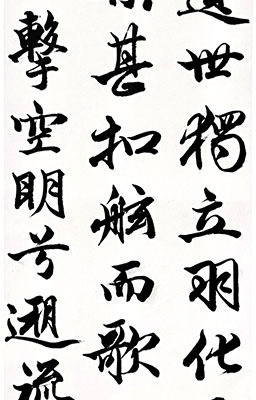 遺世獨立羽化
甚扣舷而歌
擊空明兮遡流